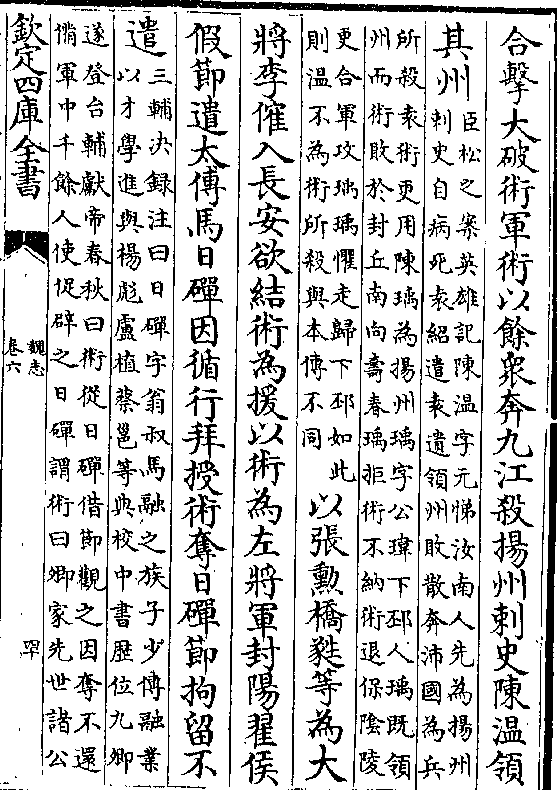 合擊大破術軍術以餘衆奔九江殺揚州刺史陳温領
其州
臣松之案英雄記陳温字元悌汝南人先為揚州
刺史自病死袁紹遣袁遺領州敗散奔沛國為兵
所殺袁術更用陳瑀為揚州瑀字公瑋下邳人瑀既領
州而術敗於封丘南向壽春瑀拒術不納術退保隂陵
更合軍攻瑀瑀懼走歸下邳如此
則温不為術所殺與本傳不同
以張勲橋蕤等為大
將李傕入長安欲結術為援以術為左將軍封陽翟侯
假節遣太傅馬日磾因循行拜授術奪日磾節拘留不
遣
三輔決録注曰日磾字翁叔馬融之族子少傳融業
以才學進與楊彪盧植蔡邕等典校中書歴位九卿
遂登台輔獻帝春秋曰術從日磾借節觀之因奪不還
偹軍中千餘人使促辟之日磾謂術曰卿家先世諸公
欽定四庫全書
魏志
卷六